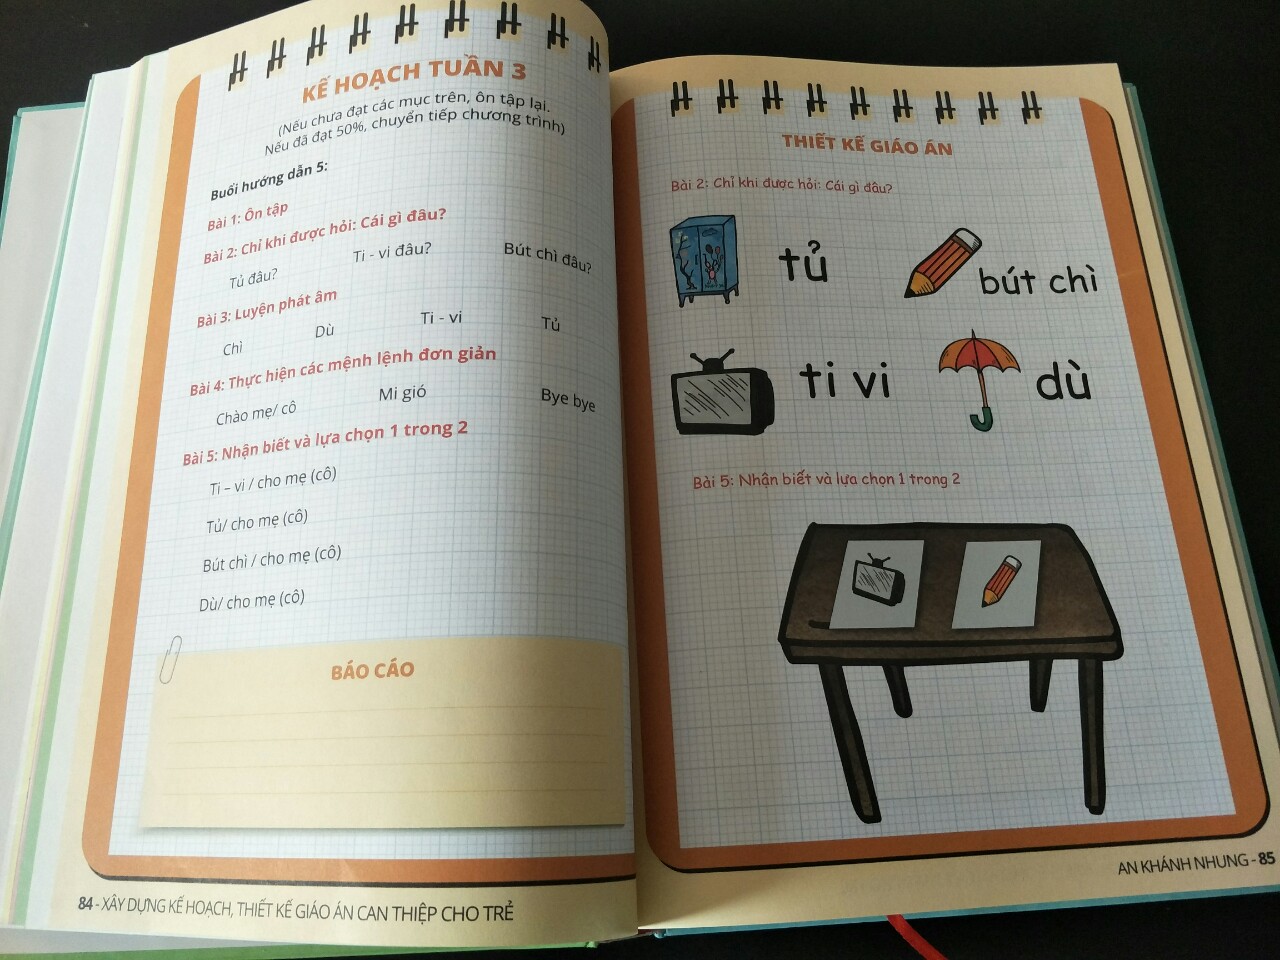 KẾ HOẠCH TUẦN 3
(Nếu chưa đạt các mục trên, ôn tập lại.
Nếu đã đạt 50%, chuyển tiếp chương trình)
Buổi hướng dẫn 5:
Bài 1: Ôn tập
Bài 2: Chỉ khi được hỏi: Cái gì đâu?
Tủ đâu? Ti - vi đâu? Bút chì đâu?
Bài 3: Luyện phát âm
Chì Dù Ti - vi Tủ
Bài 4: Thực hiện các mệnh lệnh đơn giản
Chào mẹ/ cô Mi gió Bye bye
Bài 5: Nhận biết và lựa chọn 1 trong 2
Ti – vi / cho mẹ (cô)
Tủ/ cho mẹ (cô)
Bút chì / cho mẹ (cô)
Dù/ cho mẹ (cô)
BÁO CÁO
84 - XÂY DỰNG KẾ HOẠCH, THIẾT KẾ GIÁO ÁN CAN THIỆP CHO TRẺ
THIẾT KẾ GIÁO ÁN
Bài 2: Chỉ khi được hỏi: Cái gì đâu?
tủ bút chì
ti vi dù
Bài 5: Nhận biết và lựa chọn 1 trong 2
AN KHÁNH NHUNG - 85